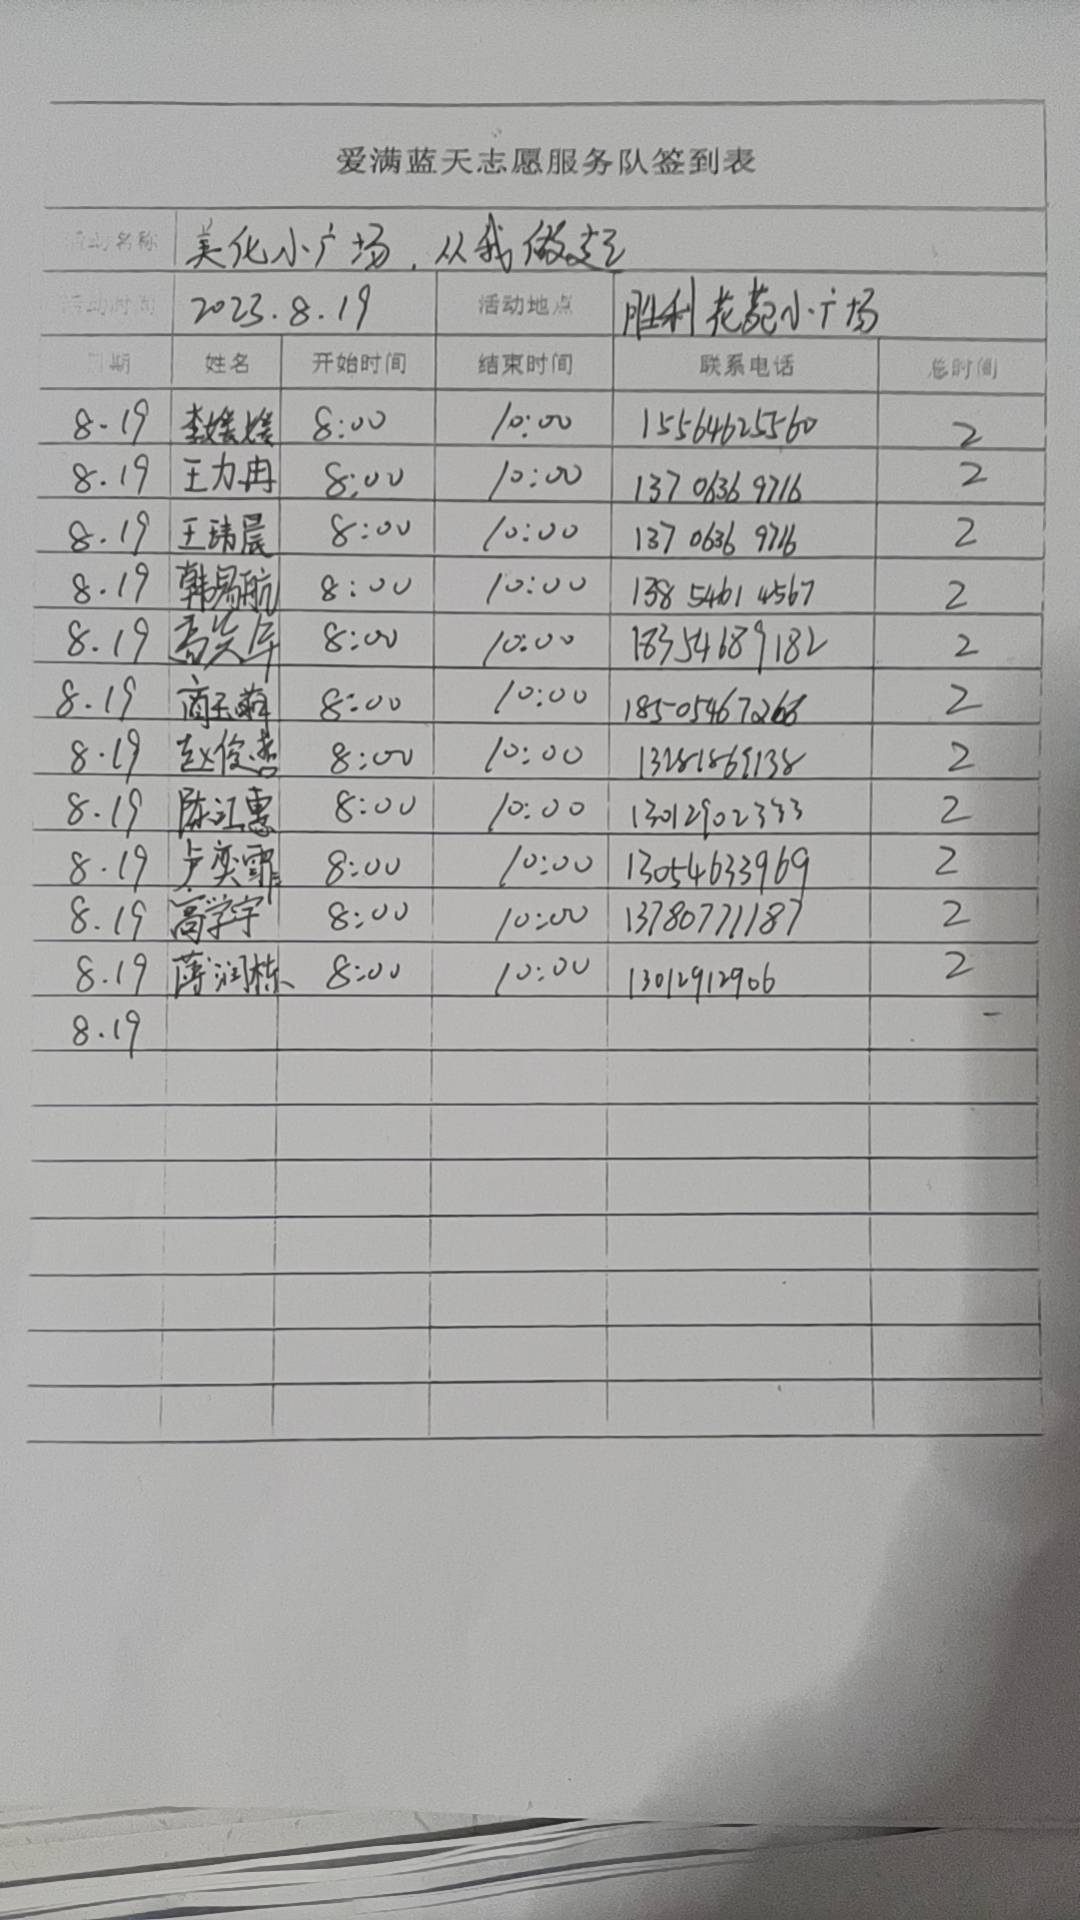 爱满蓝天志愿服务队签到表
活动名称 美化小广场,从我做起
活动时间 2023.8.19 活动地点 胜利花苑小广场
日期 姓名 开始时间 结束时间 联系电话 总时间
8.19 李媛媛 8:00 10:00 15564625560 2
8.19 王力冉 8:00 10:00 137 0636 9716 2
8.19 王玮晨 8:00 10:00 137 0636 9716 2
8.19 韩易航 8:00 10:00 138 5461 4567 2
8.19 8:00 10:00 18354689182 2
8.19 8:00 10:00 2
8.19 赵俊杰 8:00 10:00 2
8.19 陈江惠 8:00 10:00 13012902333 2
8.19 卢奕霏 8:00 10:00 13054633969 2
8.19 高学宇 8:00 10:00 13780771187 2
8.19 蒋润栋 8:00 10:00 13012912906 2
8.19